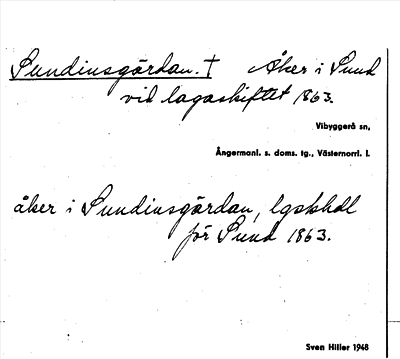 Sundinsgårdan. † Åker i Sund
vid lagaskiftet 1863.
Vibyggerå sn,
Ångermanl. s. doms. tg., Västernorrl. l.
åker i Sundinsgårdan, lgskhdl
för Sund 1863.
Sven Hiller 1948